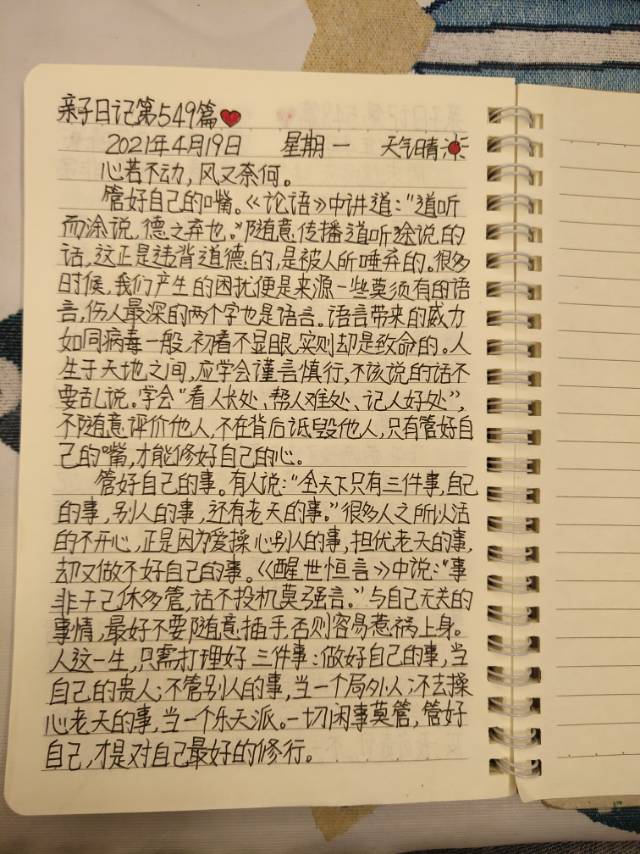 亲子日记第549篇
2021年4月19日 星期一 天气晴
心若不动，风又奈何。
管好自己的嘴。《论语》中讲道：“道听
而涂说，德之弃也。”随意传播道听途说的
话，这正是违背道德的，是被人所唾弃的。很多
时候，我们产生的困扰便是来源一些莫须有的语
言，伤人最深的两个字也是语言。语言带来的威力
如同病毒一般，初看不显眼，实则却是致命的。人
生于天地之间，应学会谨言慎行，不该说的话不
要乱说。学会“看人长处、帮人难处、记人好处”，
不随意评价他人，不在背后诋毁他人，只有管好自
己的嘴，才能修好自己的心。
管好自己的事。有人说：“全天下只有三件事，自己
的事，别人的事，还有老天的事。”很多人之所以活
的不开心，正是因为爱操心别人的事，担忧老天的事，
却又做不好自己的事。《醒世恒言》中说：“事
非干己休多管，话不投机莫强言。”与自己无关的
事情，最好不要随意插手，否则容易惹祸上身。
人这一生，只需打理好三件事：做好自己的事，当
自己的贵人；不管别人的事，当一个局外人；不去操
心老天的事，当一个乐天派。一切闲事莫管，管好
自己，才是对自己最好的修行。